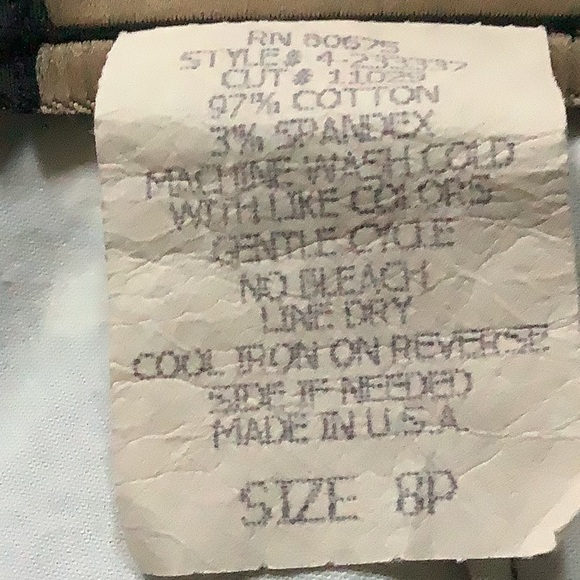 RN 80675
STYLE# 4-233337
CUT# 11028
97% COTTON
3% SPANDEX
MACHINE WASH COLD
WITH LIKE COLORS
GENTLE CYCLE
NO BLEACH
LINE DRY
COOL IRON ON REVERSE
SIDE IF NEEDED
MADE IN U.S.A.
SIZE 8P